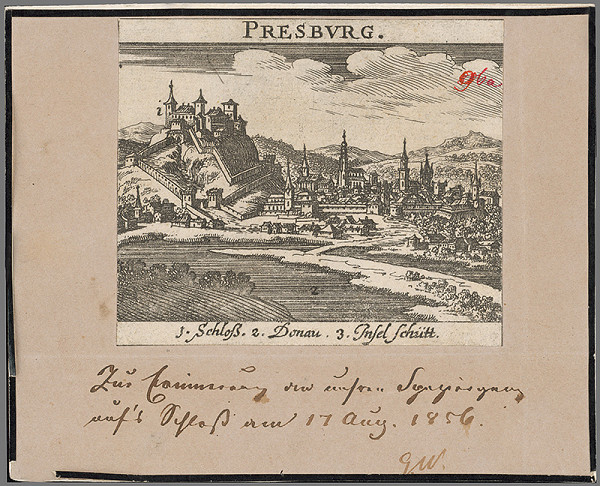 PRESBVRG.
96a
1
2
1. Schloß. 2. Donau. 3. Insel schütt.
Zur Erinnerung an unsren Spaziergang
auf's Schloß am 17 Aug. 1856.
GW.